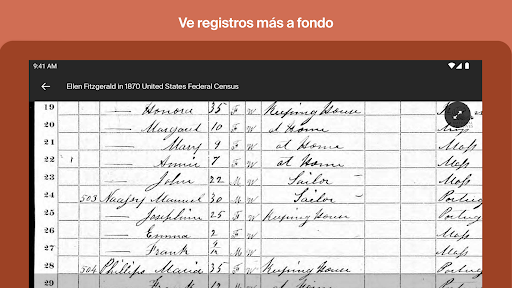 Ve registros más a fondo
9:41 AM
Ellen Fitzgerald in 1870 United States Federal Census
19 — Honora 35 F W Keeping House
20 — Margaret 10 F W at Home Mass
21 — Mary 9 F W at Home Mass
22 1 — Annie 7 F W at Home Mass
23 — John 22 M W Sailor Mass
24 503 Manuel 30 M W Sailor Portug
25 — Josephine 25 F W Keeping House Portug
26 — Emma 2 F W Mass
27 — Frank M W Mass
28 504 Phillips Maria 35 F W Keeping House Portug
— Frank 12 M W